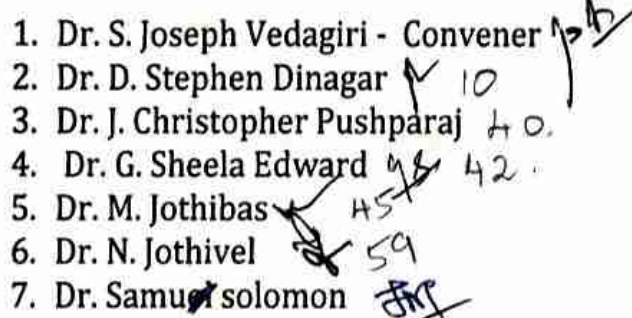 1. Dr. S. Joseph Vedagiri - Convener
2. Dr. D. Stephen Dinagar 10
3. Dr. J. Christopher Pushparaj 40.
4. Dr. G. Sheela Edward 42.
5. Dr. M. Jothibas 45
6. Dr. N. Jothivel 59
7. Dr. Samuel solomon